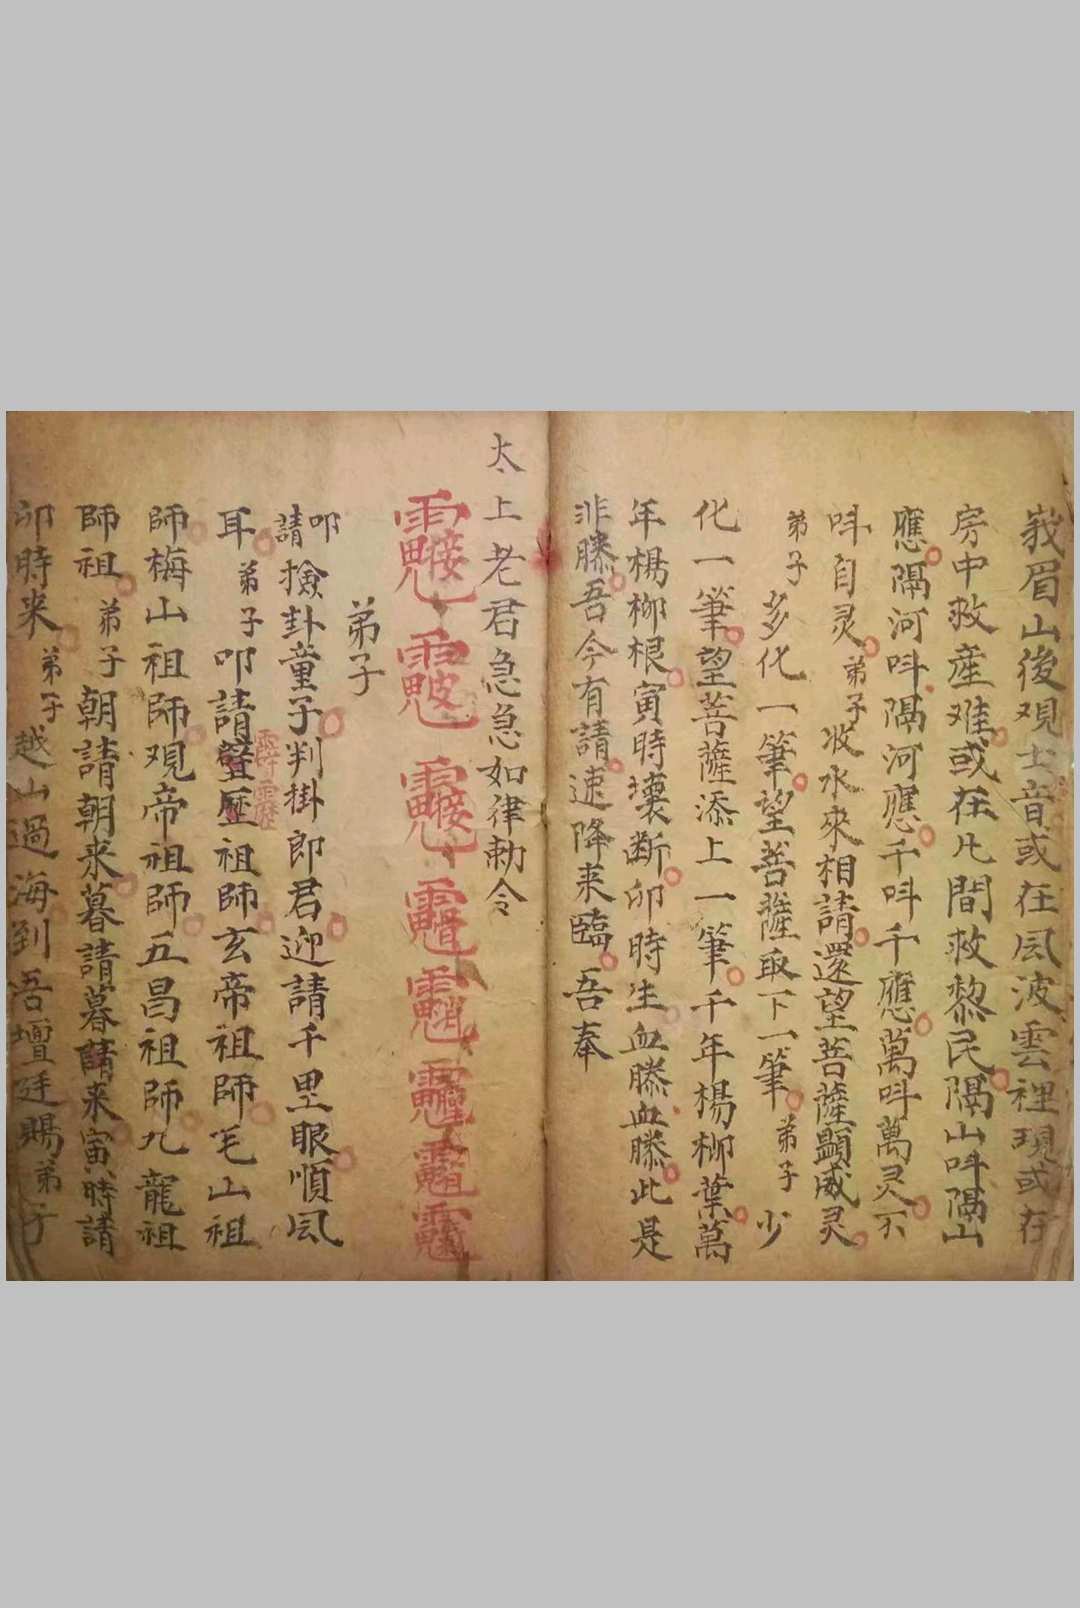 峩眉山後观士音或在风波雲裡現或在
房中救産难或在凡間救黎民隔山呌隔山
應隔河呌隔河應千呌千應萬呌萬灵不
呌自灵弟子收水來相請還望菩薩顕威灵
弟子多化一筆望菩薩取下一筆弟子少
化一筆望菩薩添上一筆千年楊柳葉萬
年楊柳根寅時壞断卯時生血藤血藤此是
非藤吾今有請速降来臨吾奉
太上老君急急如律勅令
弟子
叩請撿卦童子判掛郎君迎請千里眼順风
耳弟子叩請壁歴祖師玄帝祖師毛山祖
霹靂
師梅山祖師观帝祖師五昌祖師九龍祖
師祖弟子朝請朝来暮請暮来寅時請
卯時来弟子越山過海到吾壇廷賜弟子